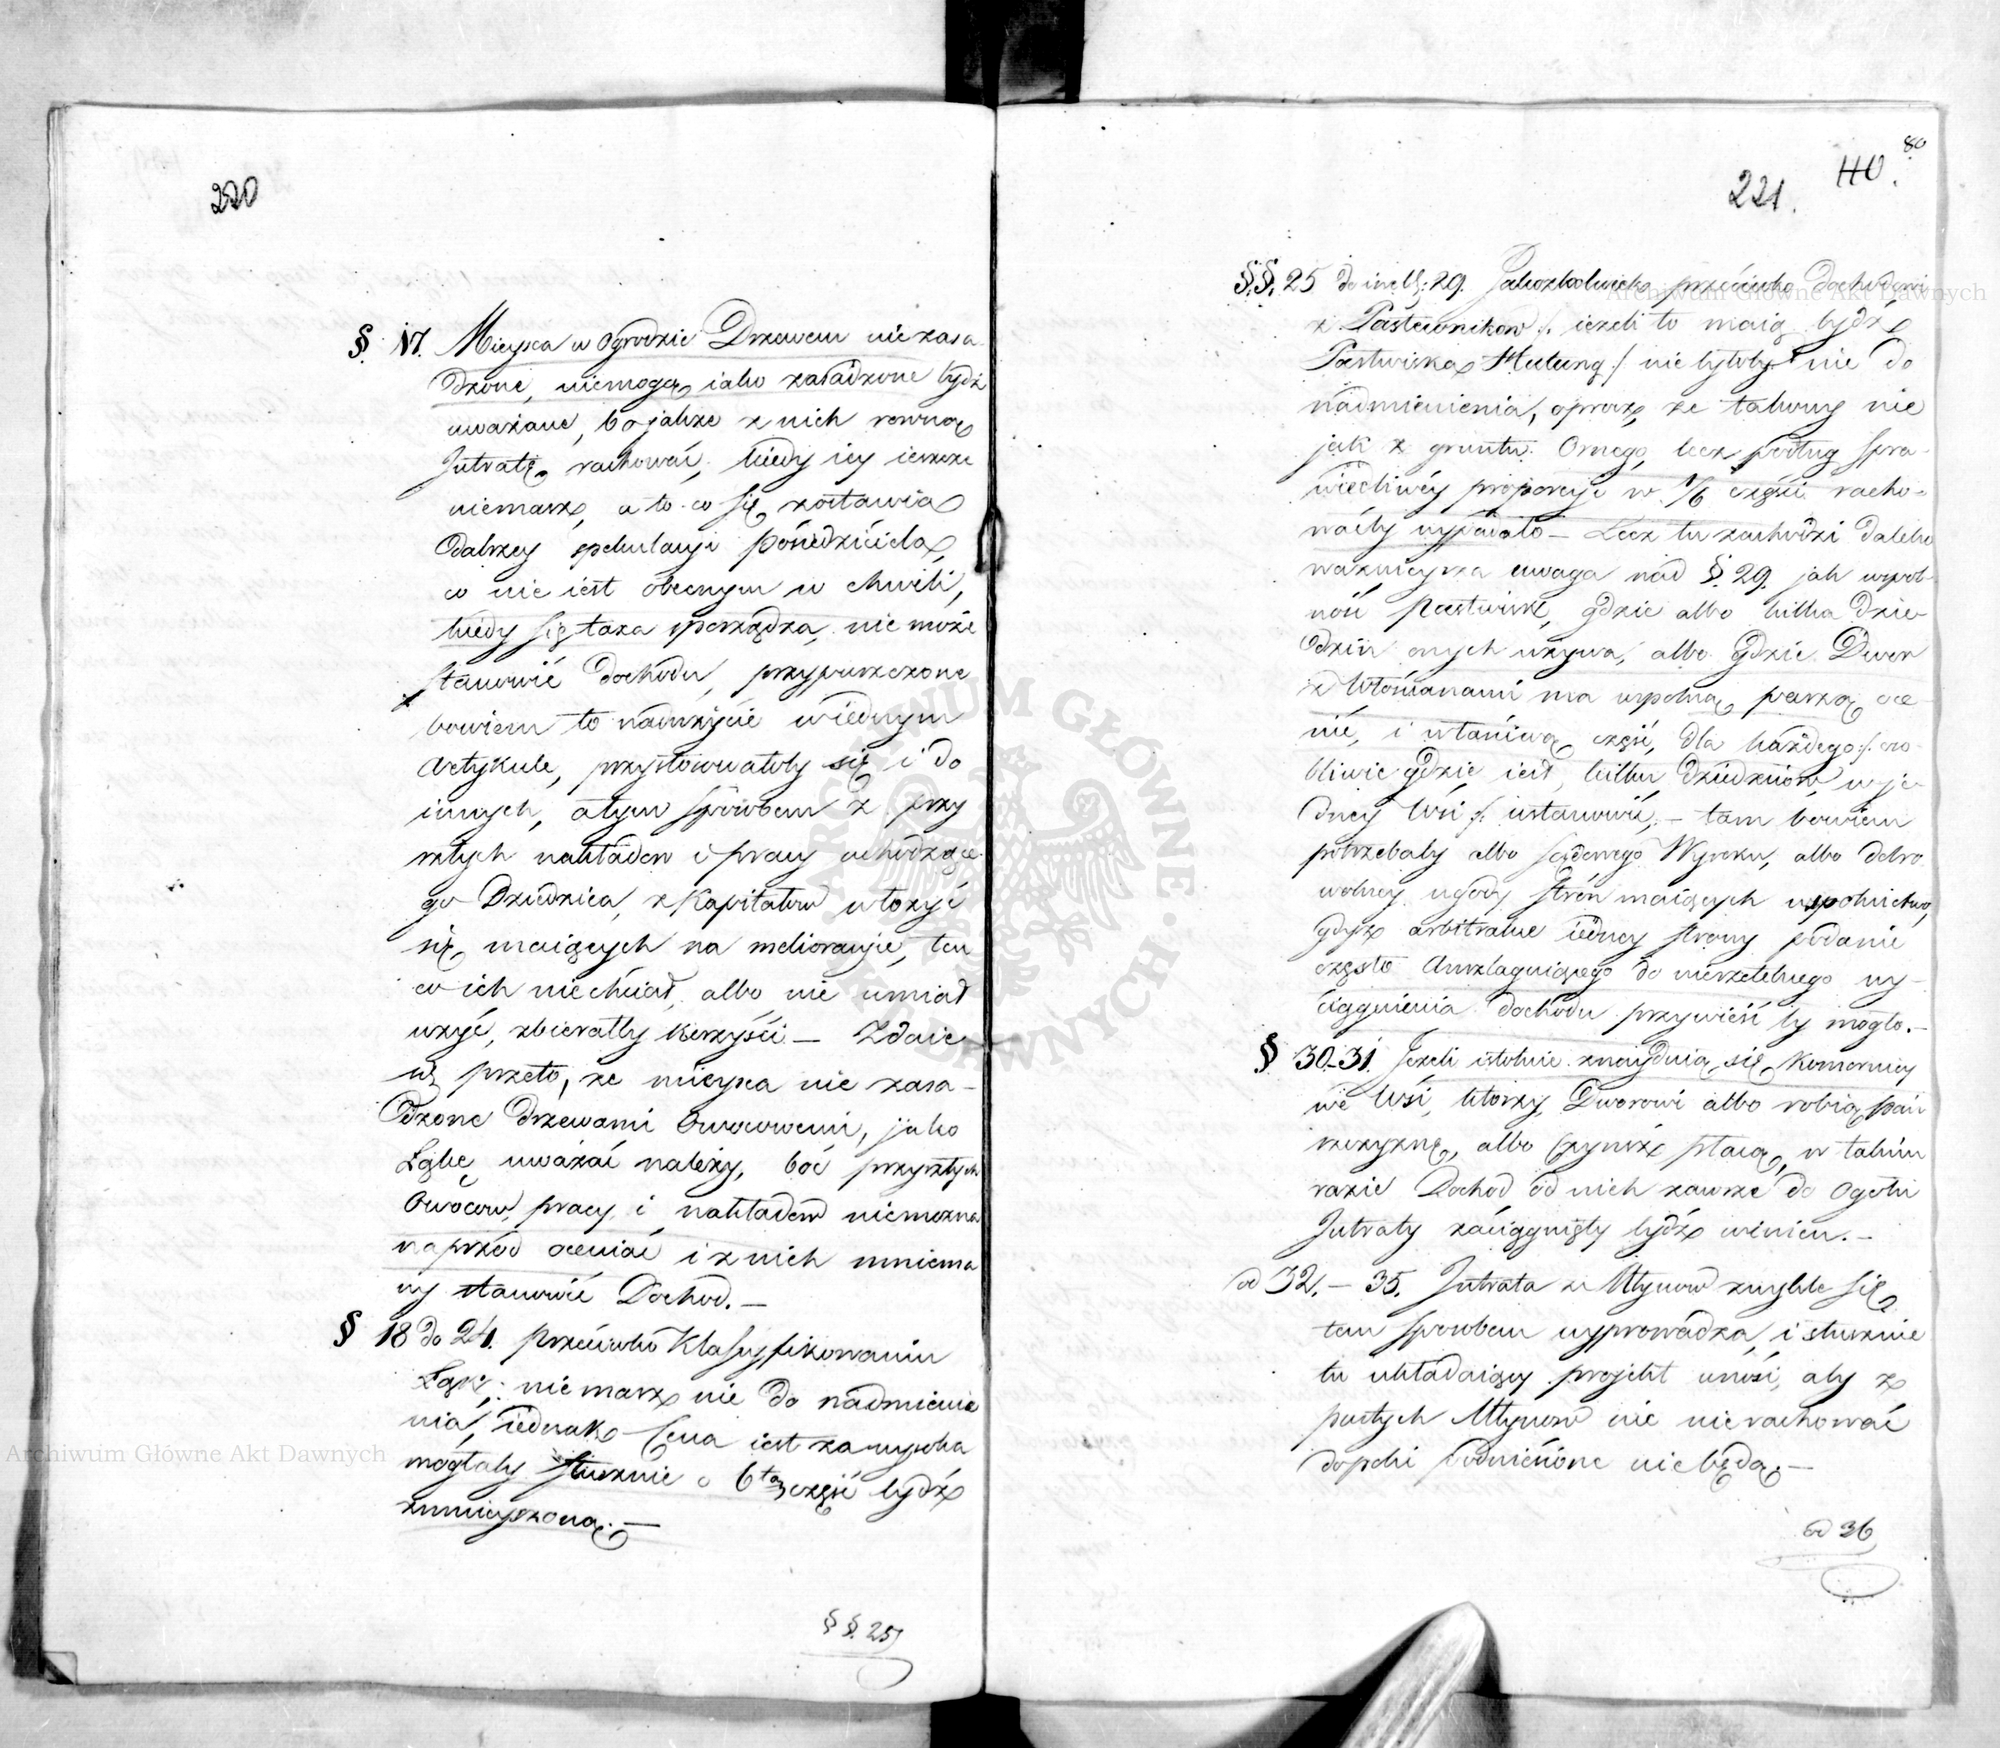 220
§ 17. Mieysca w Ogrodzie Drzewem nie zasa-
dzone, niemogą iako zasadzone bydź
uważane, bo jakże z nich rowną
Jntratę rachować, kiedy iey ieszcze
niemasz, a to co się zostawia
dalszey spekulacyi Pośiedziciela,
co nie iest obecnym w chwili,
kiedy się taxa sporządza, nie może
stanowić dochodu, przypuszczone
bowiem to nadużycie w iednym
Artykule, przystosowałoby się i do
innych, a tym sposobem z przy
szłych nakładow i pracy uchodzące
go Dziedzica, z Kapitałow włożyć
się maiących na melioracyie, ten
co ich niechciał, albo nie umiał
użyć, zbierałby korzyści — Zdaie
się przeto, że mieysca nie zasa-
dzone drzewami Owocowemi, jako
Łąkę uważać należy, boć przyszłych
Owocow, pracy i nakładow niemożna
naprzód oceniać i z nich mniema
ny stanowić Dochód. —
§ 18 do 24. przeciwko Klassyfikowaniu
Łąk, niemasz nic do nadmienie
nia, iednak Cena iest za wysoka
mogłaby słusznie o 6tą część bydź
zmnieyszoną. —
§ §. 25
80
221. 110.
§.§. 25 do incl: 29. Jakożkolwiek przeciwko dochodowi
z Pastewnikow /: ieżeli to maią bydź
Pastwiska Hutung :/ nie byłoby nic do
nadmienienia, oprocz, że takowy nie
jak z gruntu Ornego, lecz podług spra-
wiedliwéy proporcyi w 1/6 części racho-
waćby wypadało — Lecz tu zachodzi daleko
ważnieysza uwaga nad §. 29. jak wspol-
ność Pastwisk, gdzie albo kilka Dzie
dzin onych używa, albo gdzie Dwor
z Włościanami ma wspolną paszą oce-
nić, i właściwą część, dla każdego /: oso-
bliwie gdzie iest kilku Dziedzicow w je-
dney Wsi :/ ustanowić; — tam bowiem
potrzebaby albo sądowego Wyroku, albo dobro
wolney ugody Stron maiących wspolnictwo,
gdyż arbitralne iedney strony podanie
często Anszlaguiącego do nierzetelnego wy-
ciągnienia dochodu przywieść by mogło. —
§ 30-31. Jeżeli istotnie znayduią się Komornicy
we Wsi, ktorzy Dworowi albo robią pań
szczyznę, albo Czynsz płacą, w takim
razie Dochod od nich zawsze do Ogołu
Jntraty zaciągnięty bydź winien. —
od 32. — 35. Jntrata z Młynow zwykle się
tem sposobem wyprowadza, i słusznie
tu układaiący projekt wnosi, aby z
pustych Młynow nic nie rachować
dopóki podnieśione nie będą. —
od 36
Archiwum Główne Akt Dawnych
Archiwum Główne Akt Dawnych
ARCHIWUM GŁÓWNE AKT DAWNYCH